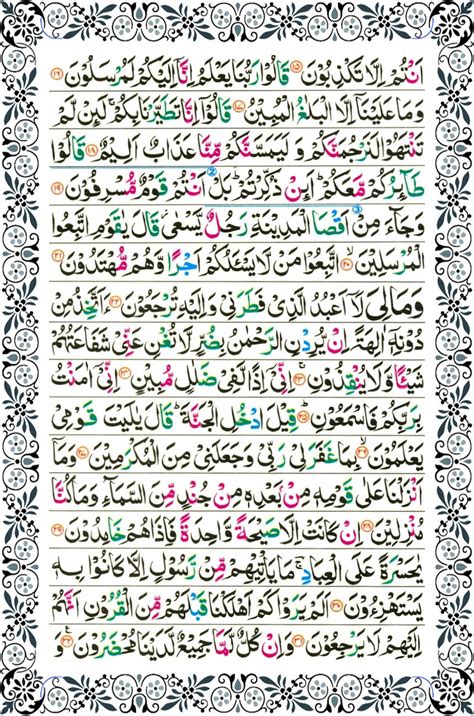 اَنْتُمْ اِلَّا تَكْذِبُوْنَ ۝۱۵ قَالُوْا رَبُّنَا يَعْلَمُ اِنَّاۤ اِلَيْكُمْ لَمُرْسَلُوْنَ ۝۱۶
وَمَا عَلَيْنَاۤ اِلَّا الْبَلٰغُ الْمُبِيْنُ ۝۱۷ قَالُوْۤا اِنَّا تَطَيَّرْنَا بِكُمْ ۚ لَئِنْ لَّمْ
تَنْتَهُوْا لَنَرْجُمَنَّكُمْ وَلَيَمَسَّنَّكُمْ مِّنَّا عَذَابٌ اَلِيْمٌ ۝۱۸ قَالُوْا
طَآئِرُكُمْ مَّعَكُمْ ؕ اَئِنْ ذُكِّرْتُمْ ؕ بَلْ اَنْتُمْ قَوْمٌ مُّسْرِفُوْنَ ۝۱۹
وَجَآءَ مِنْ اَقْصَا الْمَدِيْنَةِ رَجُلٌ يَّسْعٰى ؗ قَالَ يٰقَوْمِ اتَّبِعُوا
الْمُرْسَلِيْنَ ۝۲۰ اتَّبِعُوْا مَنْ لَّا يَسْـَٔلُكُمْ اَجْرًا وَّهُمْ مُّهْتَدُوْنَ ۝۲۱
وَمَا لِىَ لَاۤ اَعْبُدُ الَّذِىْ فَطَرَنِىْ وَاِلَيْهِ تُرْجَعُوْنَ ۝۲۲ ءَاَتَّخِذُ مِنْ
دُوْنِهٖۤ اٰلِهَةً اِنْ يُّرِدْنِ الرَّحْمٰنُ بِضُرٍّ لَّا تُغْنِ عَنِّىْ شَفَاعَتُهُمْ
شَيْـًٔا وَّلَا يُنْقِذُوْنِ ۝۲۳ اِنِّىْۤ اِذًا لَّفِىْ ضَلٰلٍ مُّبِيْنٍ ۝۲۴ اِنِّىْۤ اٰمَنْتُ
بِرَبِّكُمْ فَاسْمَعُوْنِ ۝۲۵ قِيْلَ ادْخُلِ الْجَنَّةَ ؕ قَالَ يٰلَيْتَ قَوْمِىْ
يَعْلَمُوْنَ ۝۲۶ بِمَا غَفَرَ لِىْ رَبِّىْ وَجَعَلَنِىْ مِنَ الْمُكْرَمِيْنَ ۝۲۷ وَمَاۤ
اَنْزَلْنَا عَلٰى قَوْمِهٖ مِنْۢ بَعْدِهٖ مِنْ جُنْدٍ مِّنَ السَّمَآءِ وَمَا كُنَّا
مُنْزِلِيْنَ ۝۲۸ اِنْ كَانَتْ اِلَّا صَيْحَةً وَّاحِدَةً فَاِذَا هُمْ خٰمِدُوْنَ ۝۲۹
يٰحَسْرَةً عَلَى الْعِبَادِ ۚ مَا يَاْتِيْهِمْ مِّنْ رَّسُوْلٍ اِلَّا كَانُوْا بِهٖ
يَسْتَهْزِءُوْنَ ۝۳۰ اَلَمْ يَرَوْا كَمْ اَهْلَكْنَا قَبْلَهُمْ مِّنَ الْقُرُوْنِ اَنَّهُمْ
اِلَيْهِمْ لَا يَرْجِعُوْنَ ۝۳۱ وَاِنْ كُلٌّ لَّمَّا جَمِيْعٌ لَّدَيْنَا مُحْضَرُوْنَ ۝۳۲ وَ